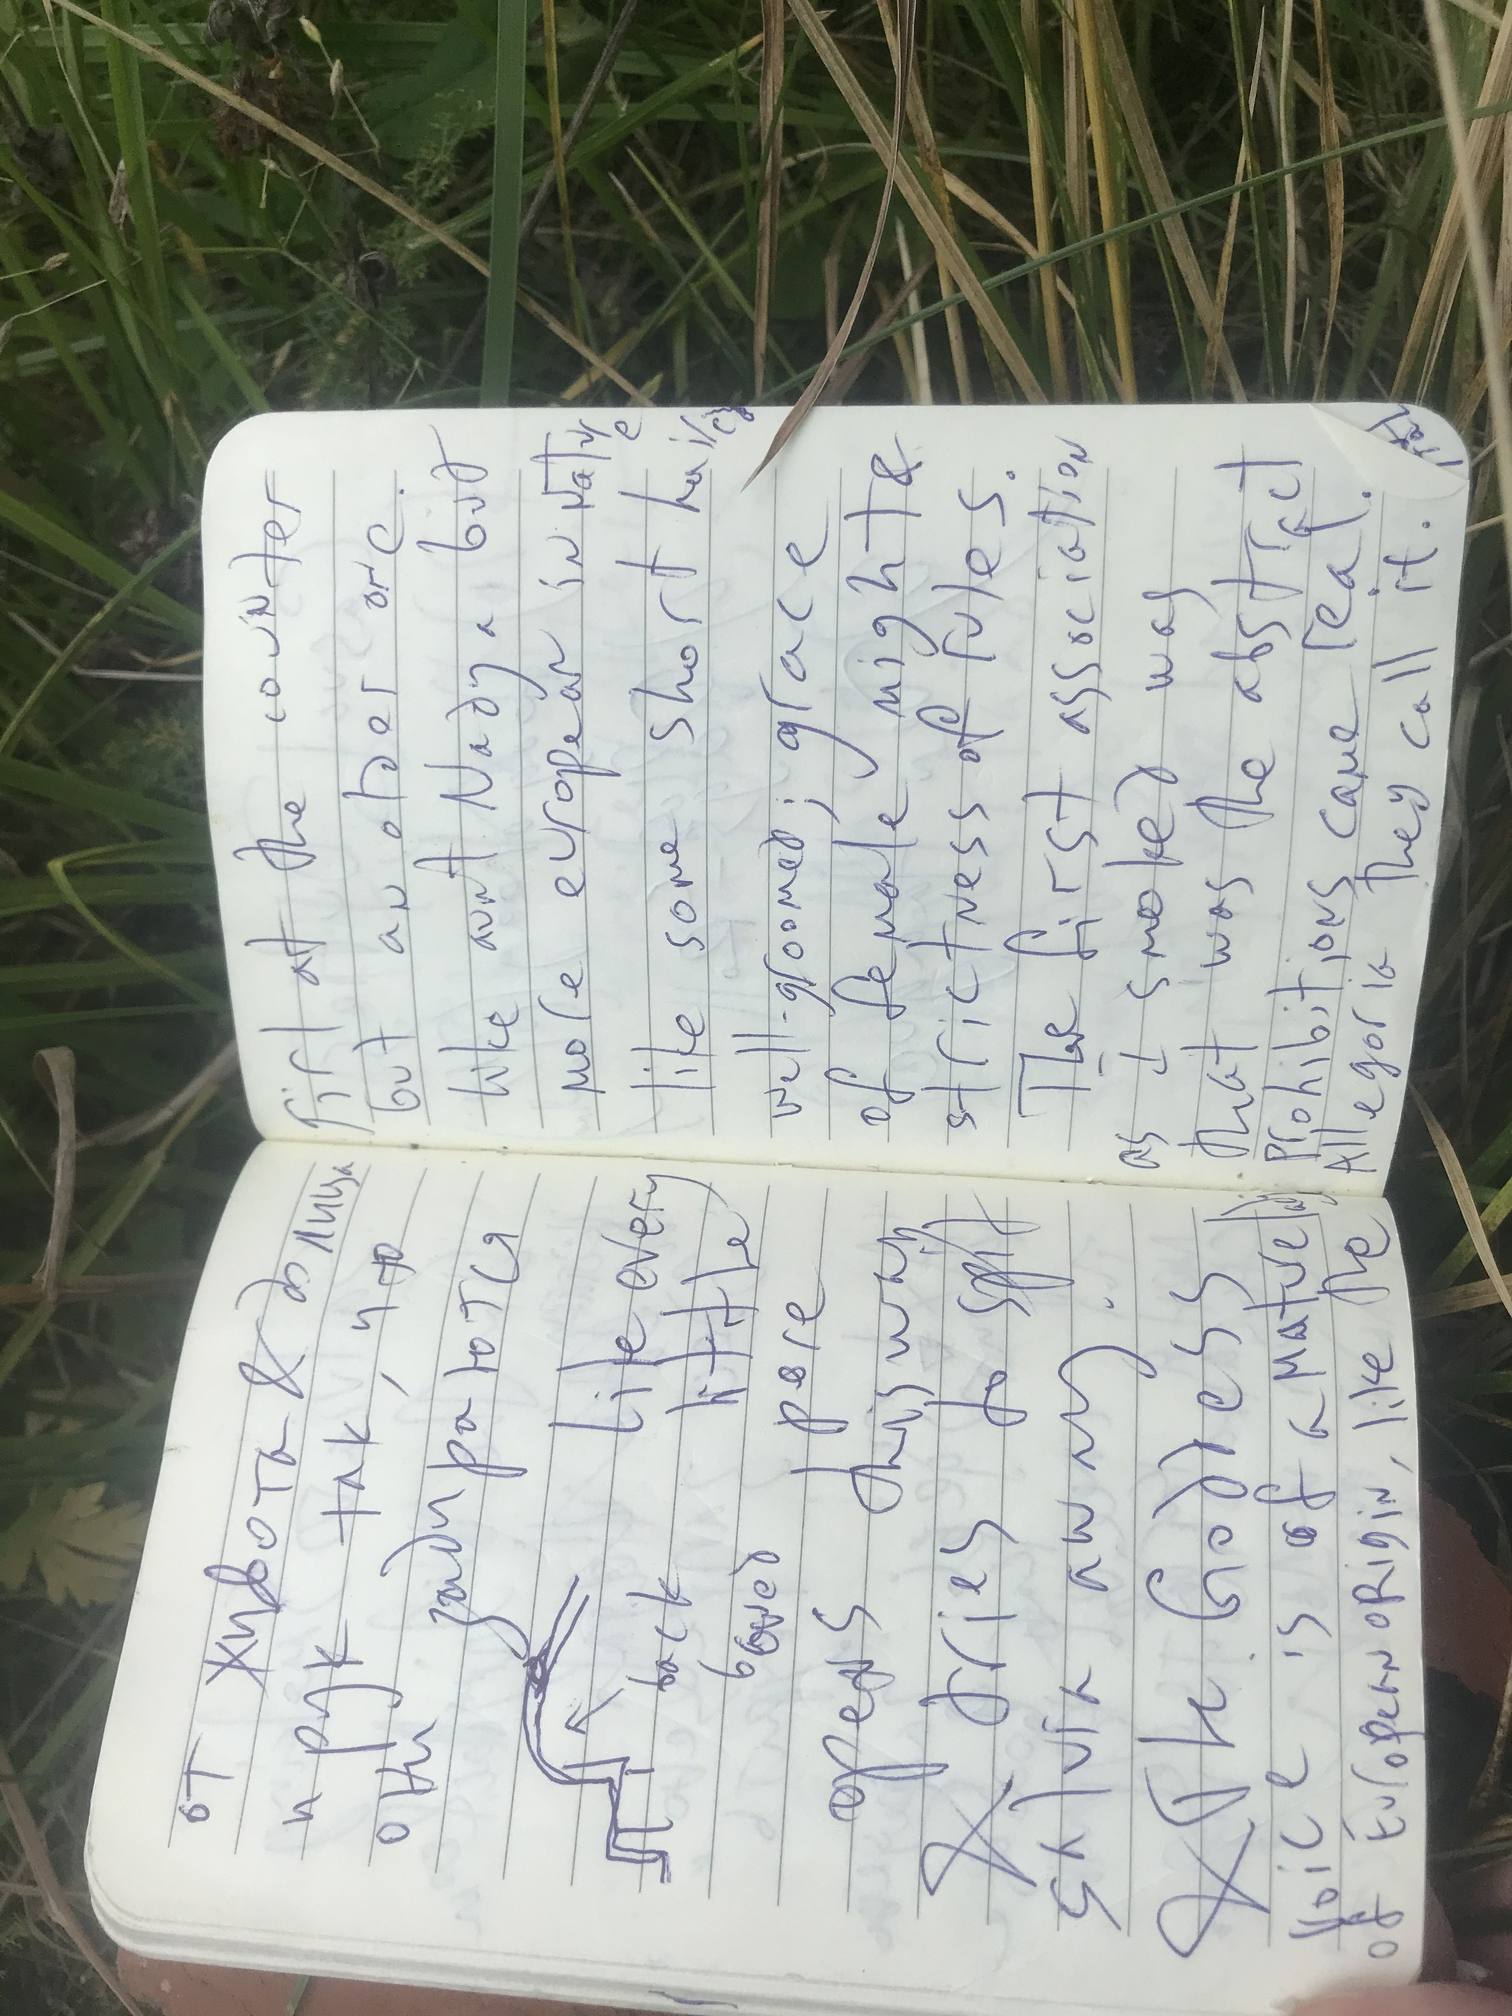 от живота & до лица
и рук так, что
они
задираются
like every
little
back
bowed
pore
opens this way
& tries to spit
saliva away.
& The Godress
Voice is of a maturelady
of European origin, like the
first at the counter
but an older one.
like aunt Nadya but
more european in nature
like some short hair
well-groomed; grace
of female might &
strictness of rules.
The first association
as I smoked was
that was the abstract
Prohibitions came real.
Allegoria they call it.